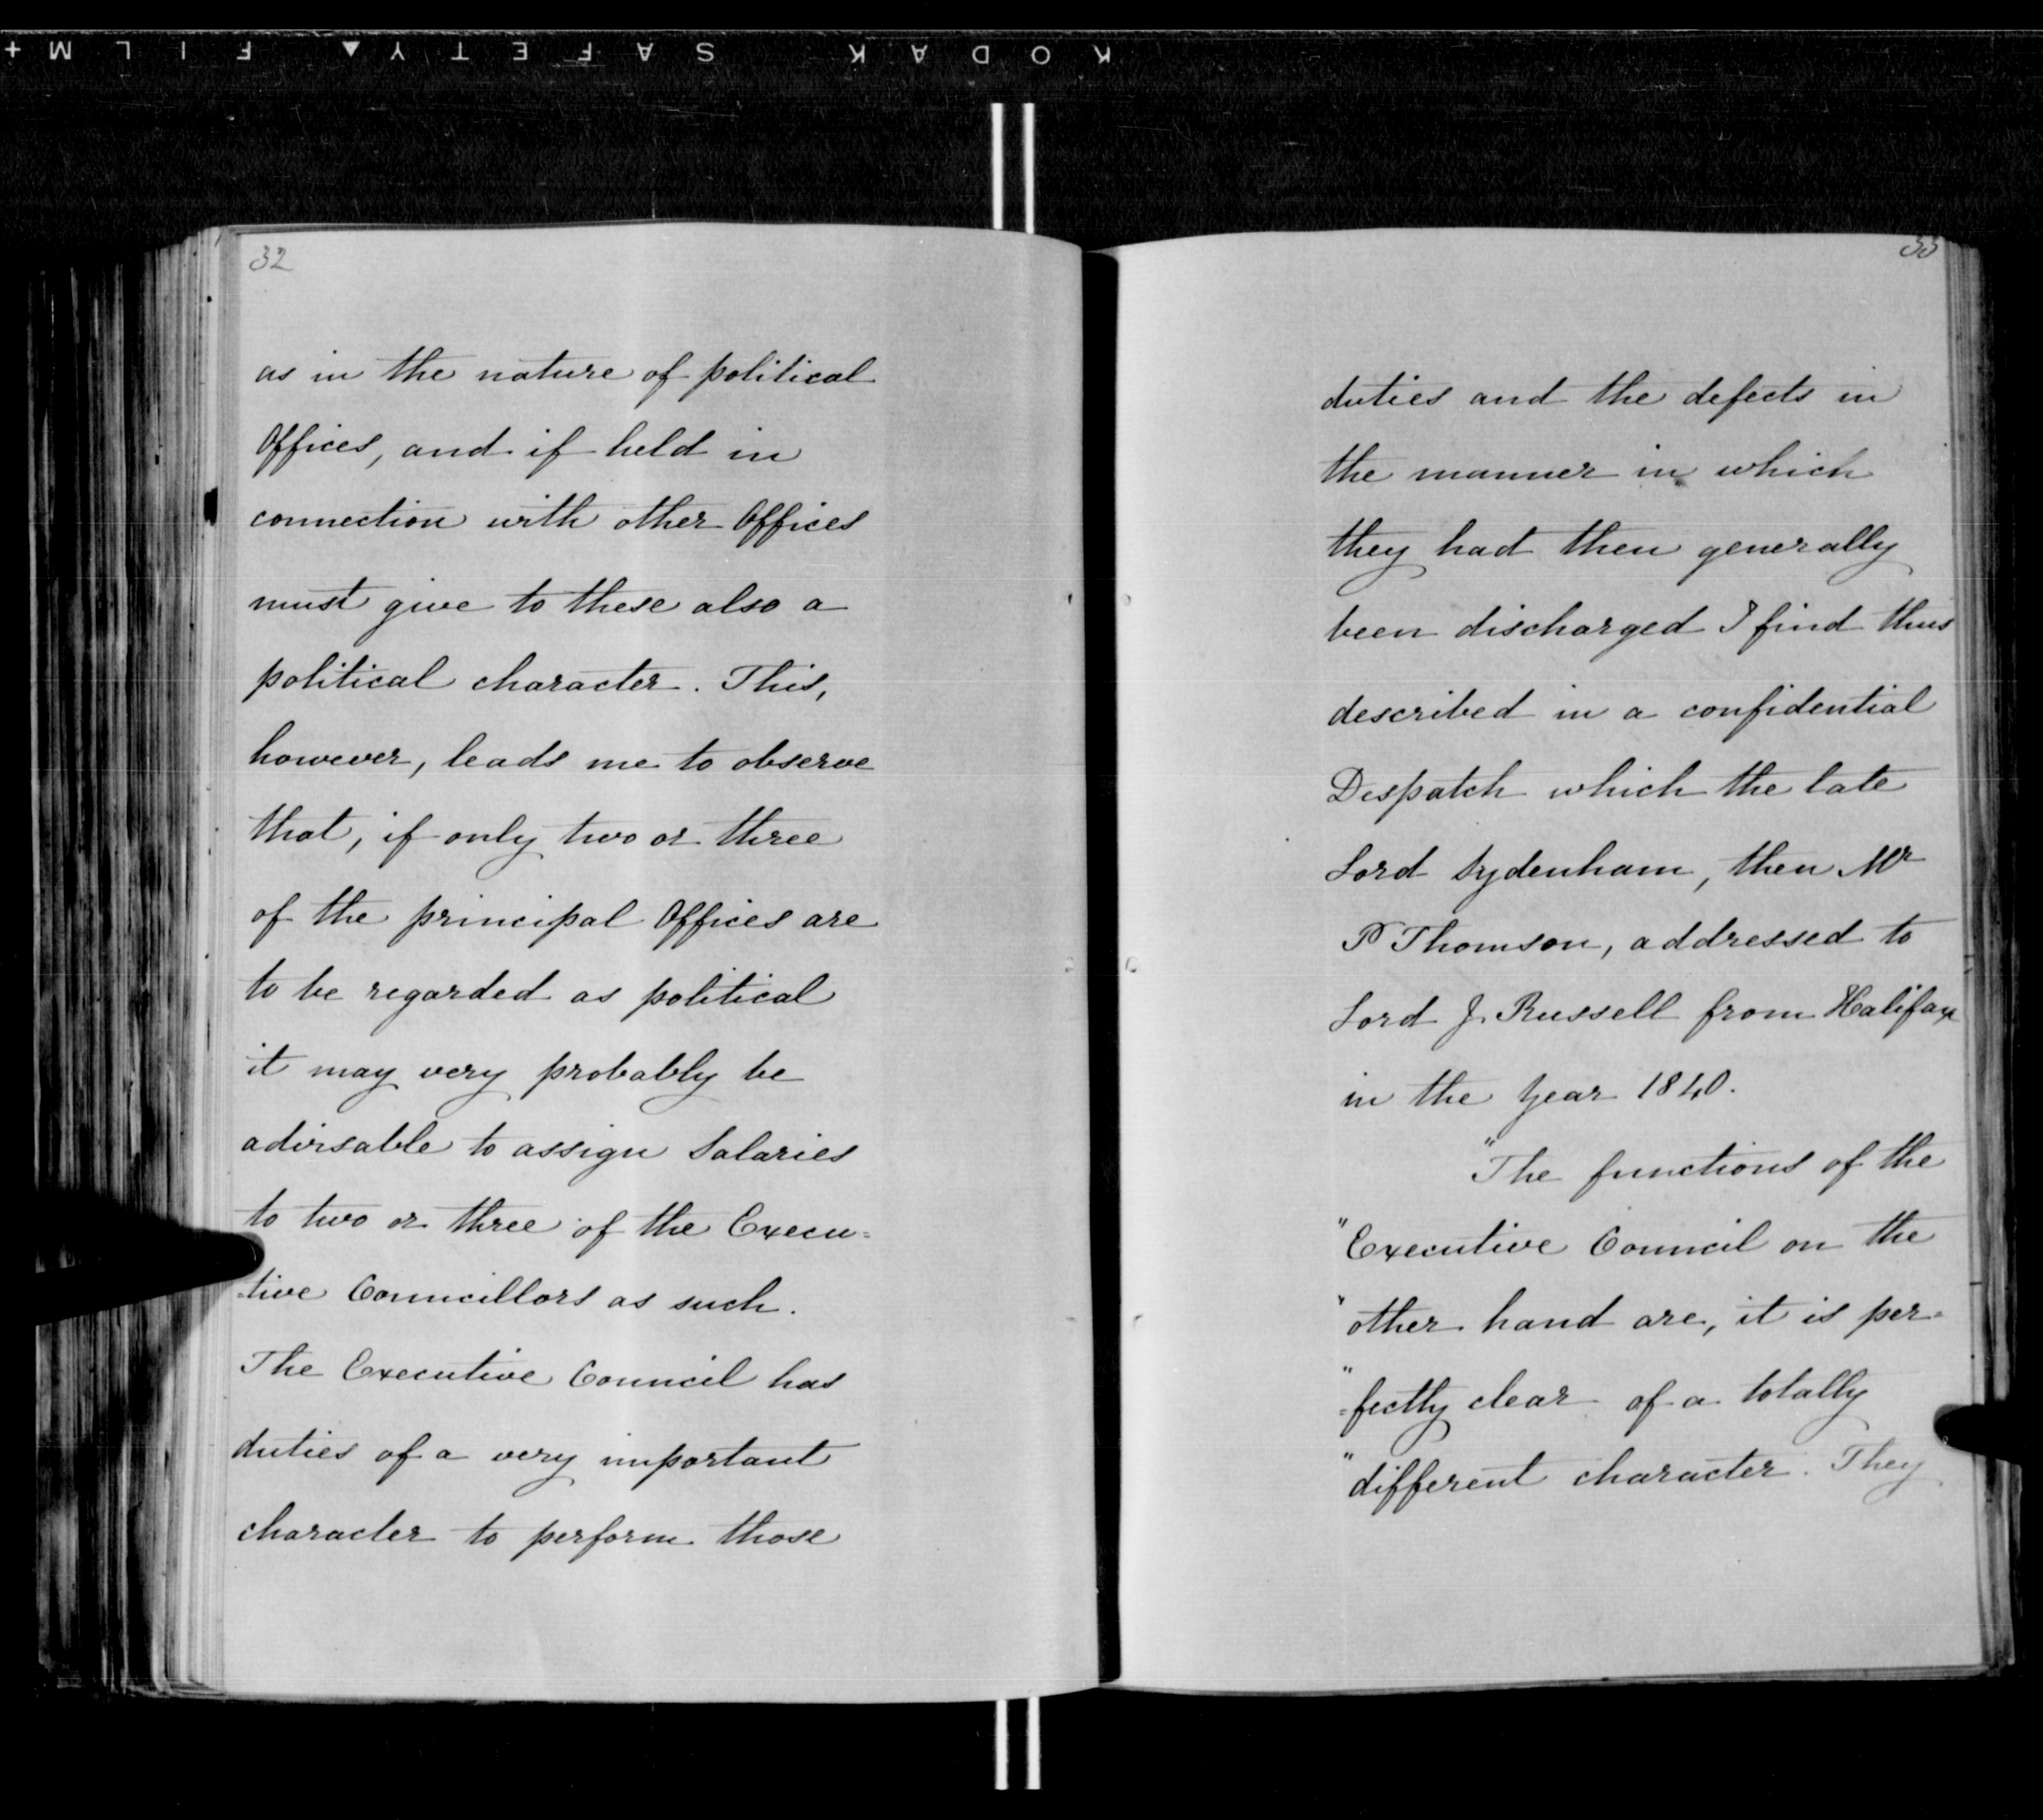 KODAK SAFETY ▲ FILM +
32
as in the nature of political
Offices, and if held in
connection with other Offices
must give to these also a
political character. This,
however, leads me to observe
that, if only two or three
of the principal Offices are
to be regarded as political
it may very probably be
advisable to assign Salaries
to two or three of the Execu=
=tive Councillors as such.
The Executive Council has
duties of a very important
character to perform those
33
duties and the defects in
the manner in which
they had then generally
been discharged I find thus
described in a confidential
Despatch which the late
Lord Sydenham, then Mr
P Thomson, addressed to
Lord J. Russell from Halifax
in the Year 1840.
"The functions of the
"Executive Council on the
"other hand are, it is per=
"=fectly clear of a totally
"different character. They